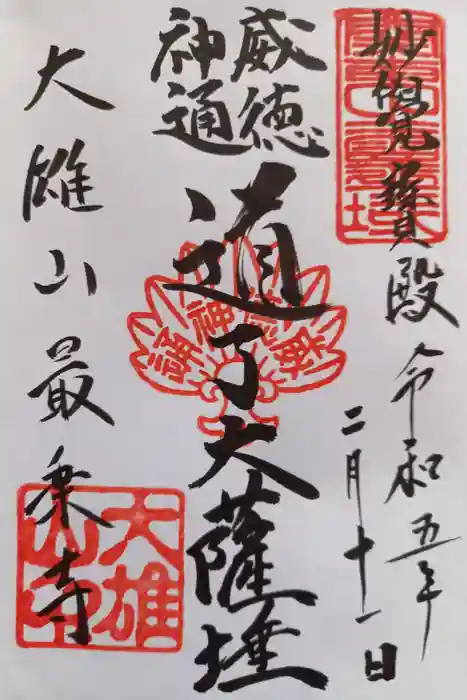 妙覺寳殿
令和五年
二月十一日
威徳
神通
道了大薩埵
大雄山最乗寺